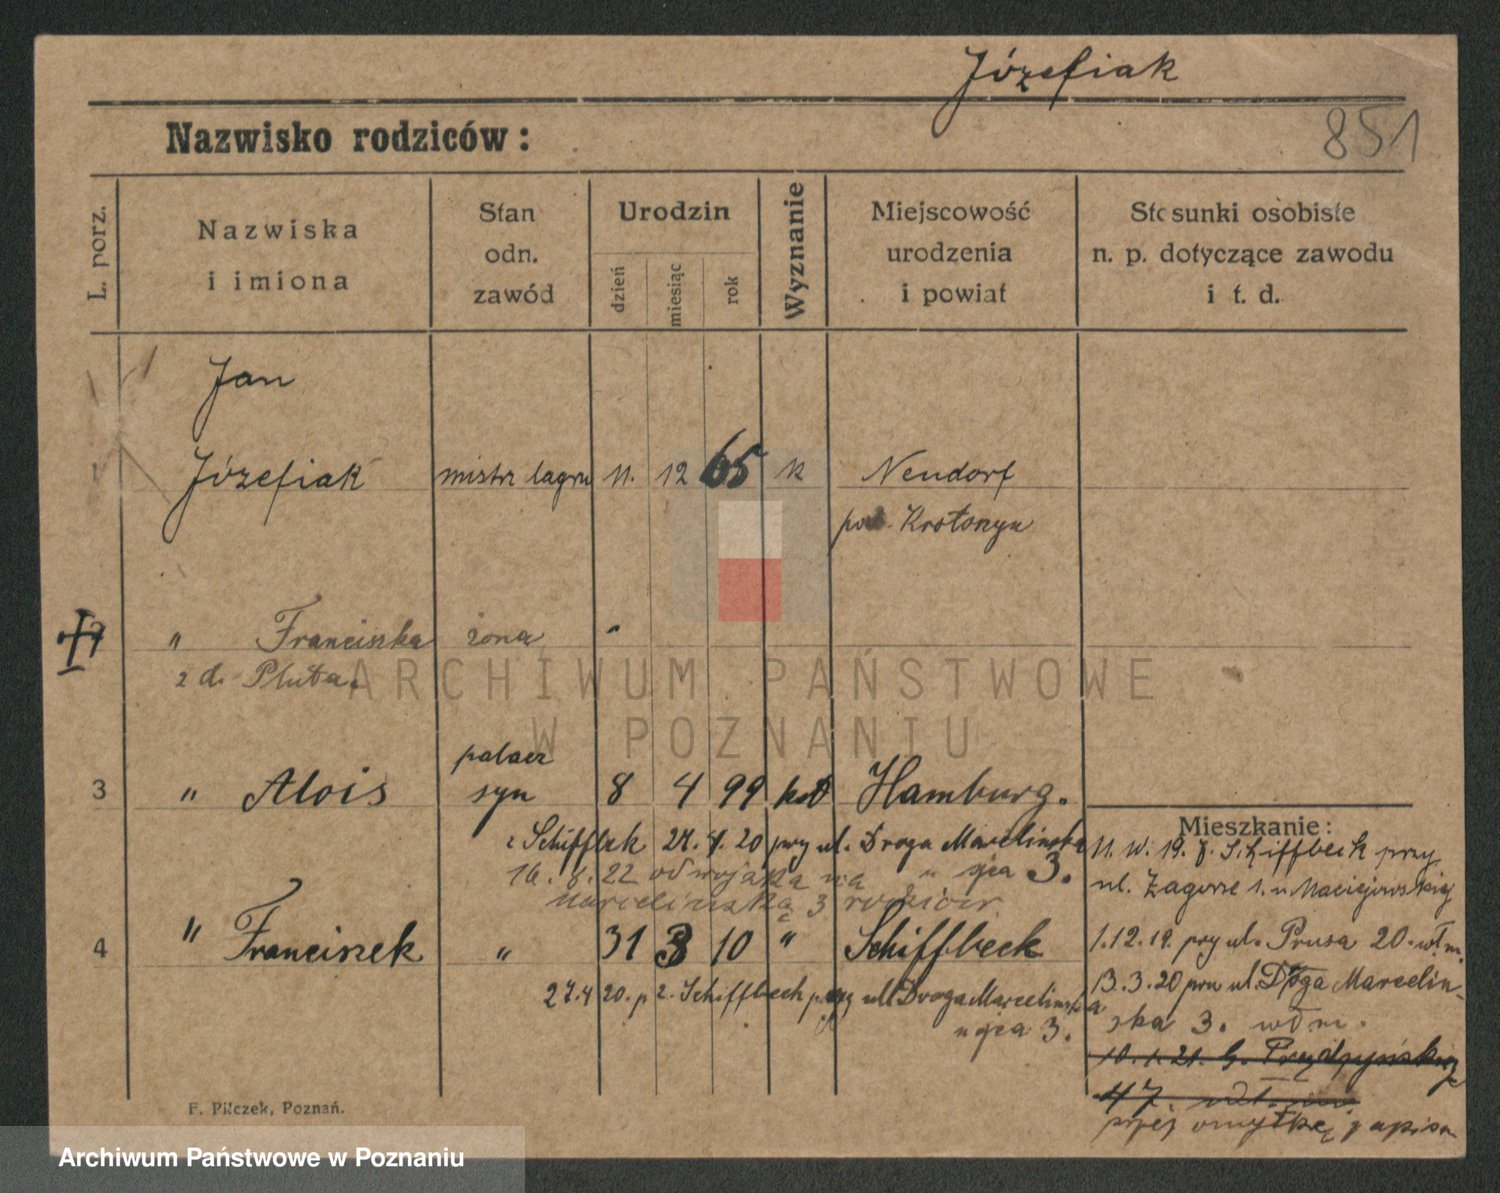 Józefiak
851
Nazwisko rodziców:
L. porz.
Nazwiska
i imiona
Stan
odn.
zawód
Urodzin
dzień
miesiąc
rok
Wyznanie
Miejscowość
urodzenia
i powiat
Stosunki osobiste
n. p. dotyczące zawodu
i t. d.
Jan
Józefiak mistrz lagru 11. 12 65 k Neudorf
Krotoszyn
" Franciszka żona
z d. Pluta.
palacz
3 " Alois syn 8 4 99 kat Hamburg.
Mieszkanie:
z Schiffbek 27.4.20 przy ul. Droga Marcelińska
16.8.22 od wojska na u ojca 3.
Marcelińska 3 rodziców
11. 19. z Schiffbeck przy
ul. Zagórze 1. u Maciejewskiej
4 " Franciszek " 31 3 10 " Schiffbeck
1.12.19. przy ul. Prusa 20. wł. m.
27.4 20. p z. Schiffbech przy ul Droga Marcelińska
u ojca 3.
13.3.20 przy ul. Droga Marceliń-
ska 3. wł m.
10.1.21. G.
47.
przez omyłkę zapisa
F. Pilczek, Poznań.
ARCHIWUM PAŃSTWOWE
W POZNANIU
Archiwum Państwowe w Poznaniu